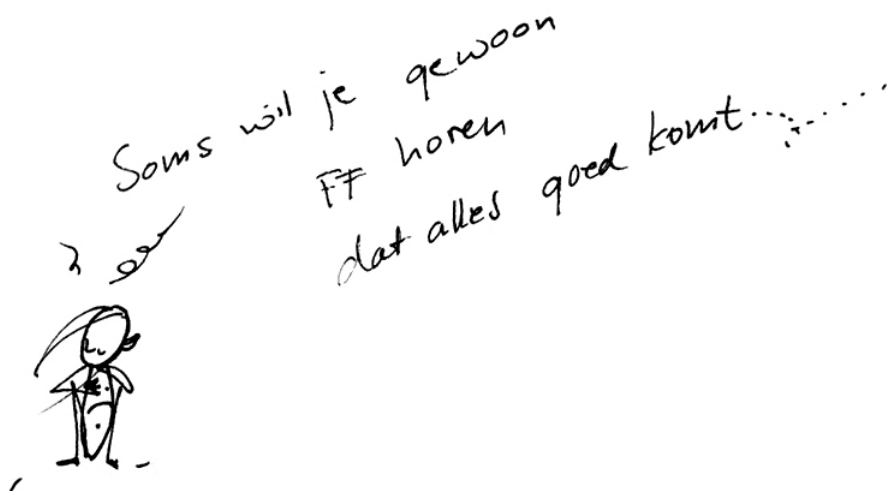 Soms wil je gewoon
FF horen
dat alles goed komt..........